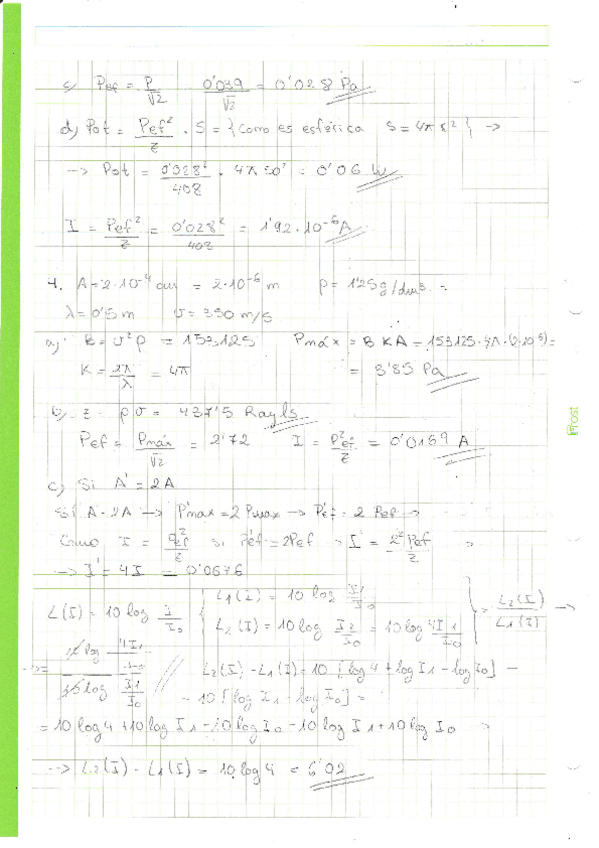 c) Pef = P/√2   0'039/√2 = 0'028 Pa
d) Pot = Pef²/z · S = {como es esférica S = 4πr²} →
→ Pot = 0'028²/408 · 4π50² = 0'06 W
I = Pef²/z = 0'028²/408 = 1'92·10⁻⁶ A
4. A = 2·10⁻⁴ cm = 2·10⁻⁶ m   ρ = 1'25 g/dm³
λ = 0'5 m   v = 350 m/s
a) B = v²ρ = 153125   Pmáx = B K A = 153125·4π·(2·10⁻⁶) =
K = 2π/λ = 4π   = 3'85 Pa
b) z = ρv = 437'5 Rayls
Pef = Pmáx/√2 = 2'72   I = P²ef/z = 0'0169 A
c) Si A' = 2A
Si A = 2A → P'max = 2 Pmax → P'ef = 2 Pef →
Como I = Pef²/z si P'ef = 2Pef → I' = 2² Pef/z →
→ I' = 4I = 0'0676
L(I) = 10 log I/I₀ { L₁(I) = 10 log I₁/I₀
L₂(I) = 10 log I₂/I₀ = 10 log 4I₁/I₀ } = L₂(I)/L₁(I) →
→ = 10 log 4I₁/I₀ / 10 log I₁/I₀
L₂(I) - L₁(I) = 10 [log 4 + log I₁ - log I₀] -
- 10 [log I₁ - log I₀] =
= 10 log 4 + 10 log I₁ - 10 log I₀ - 10 log I₁ + 10 log I₀ →
→ L₂(I) - L₁(I) = 10 log 4 = 6'02